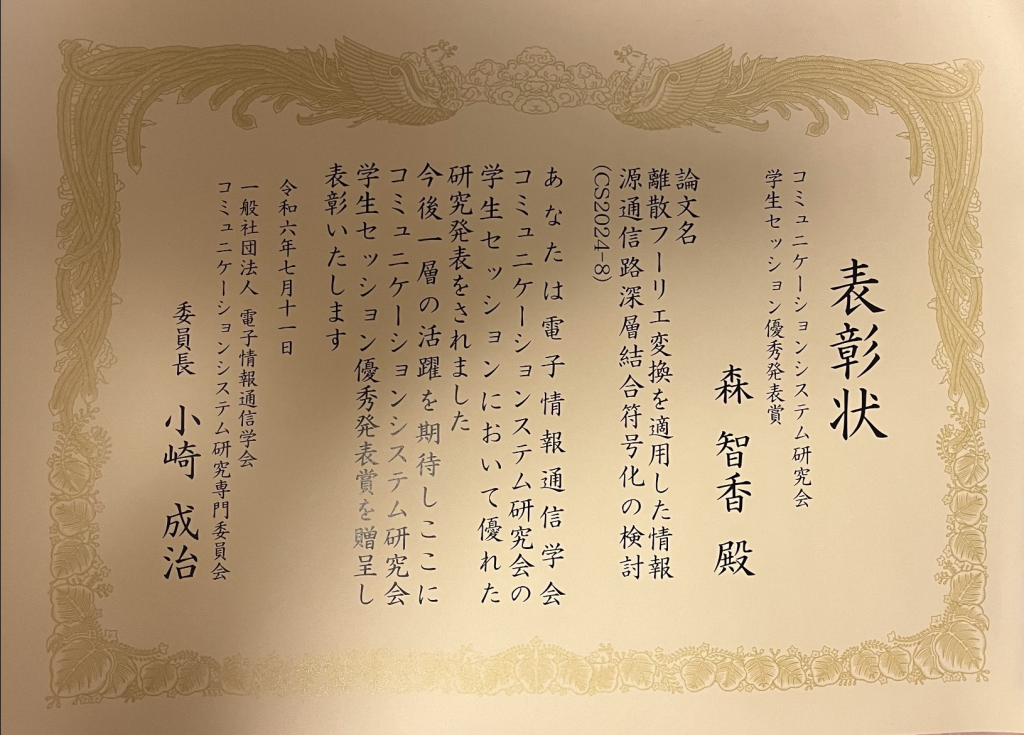 表彰状
コミュニケーションシステム研究会
学生セッション優秀発表賞
森 智香 殿
論文名
離散フーリエ変換を適用した情報
源通信路深層結合符号化の検討
(CS2024-8)
あなたは電子情報通信学会
コミュニケーションシステム研究会の
学生セッションにおいて優れた
研究発表をされました
今後一層の活躍を期待しここに
コミュニケーションシステム研究会
学生セッション優秀発表賞を贈呈し
表彰いたします
令和六年七月十一日
一般社団法人 電子情報通信学会
コミュニケーションシステム研究専門委員会
委員長 小崎 成治